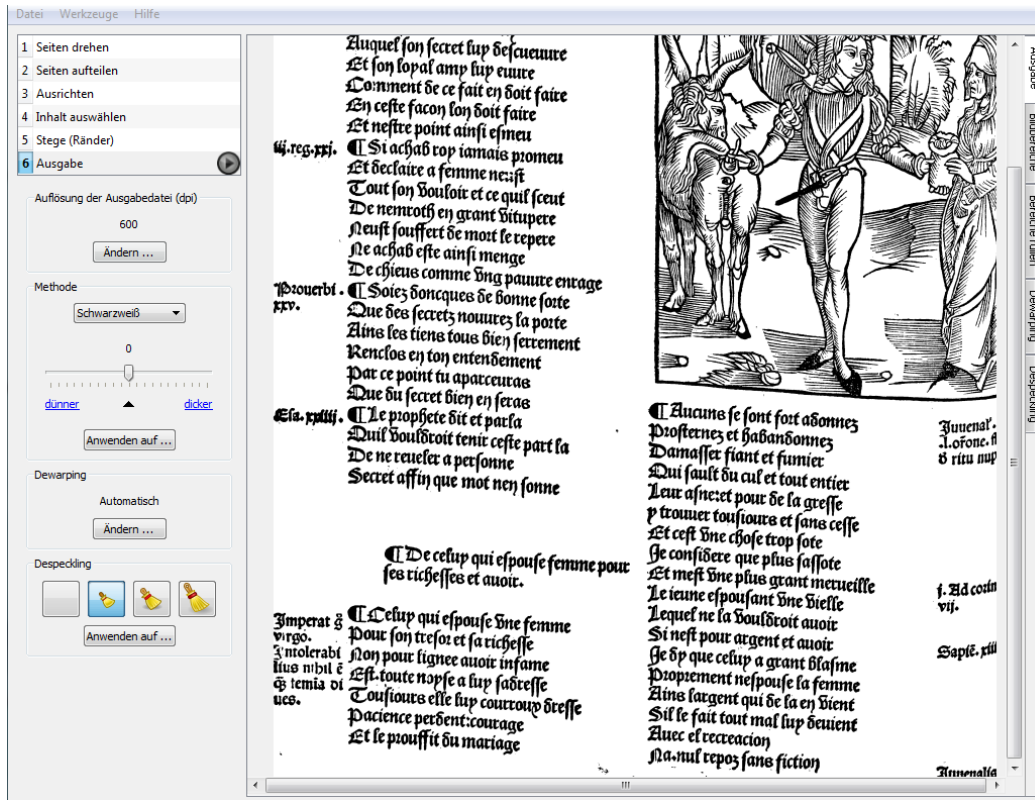 Datei Werkzeuge Hilfe
1 Seiten drehen
2 Seiten aufteilen
3 Ausrichten
4 Inhalt auswählen
5 Stege (Ränder)
6 Ausgabe
Auflösung der Ausgabedatei (dpi)
600
Ändern ...
Methode
Schwarzweiß
0
dünner dicker
Anwenden auf ...
Dewarping
Automatisch
Ändern ...
Despeckling
Anwenden auf ...
Auquel son secret luy descueuure
Et son loyal amy luy euure
Comment de ce fait en doit faire
En ceste facon lon doit faire
Et nestre point ainsi esmeu
iij.reg.xxj.
¶ Si achab roy iamais promeu
Et declaire a femme neust
Tout son vouloir et ce quil sceut
De nemroth en grant vitupere
Neust souffert de mort le repere
Ne achab este ainsi menge
De chiens comme vng pauure enrage
Prouerbi.
xxv.
¶ Soiez doncques de bonne sorte
Que des secretz nouurez la porte
Ains les tiens tous bien serrement
Renclos en ton entendement
Par ce point tu aparceuras
Que du secret bien en seras
Esa. xxiiij.
¶ Le prophete dit et parla
Quil vouldroit tenir ceste part la
De ne reueler a personne
Secret affin que mot nen sonne
¶ De celuy qui espouse femme pour
ses richesses et auoir.
Imperat q̃
virgo.
Intolerabi
lius nihil ẽ
q̃ femia di
ues.
¶ Celuy qui espouse vne femme
Pour son tresor et sa richesse
Non pour lignee auoir infame
Est.toute noyse a luy sadresse
Tousiours elle luy courrouy dresse
Pacience perdent:courage
Et le prouffit du mariage
¶ Aucuns se sont fort adonnez
Prosternez et habandonnez
Damasser fiant et fumier
Qui sault du cul et tout entier
Leur asne:et pour de la gresse
y trouuer tousiours et sans cesse
Et cest vne chose trop sote
Je considere que plus sassote
Et mest vne plus grant merueille
Le ieune espousant vne vielle
Lequel ne la vouldroit auoir
Si nest pour argent et auoir
Je dy que celuy a grant blasme
Proprement nespouse la femme
Ains largent qui de la en vient
Sil se fait tout mal luy deuient
Auec el recreacion
Na.nul repoz sans fiction
Juuenal.
.l.orõne. ff
d ritu nup
j. Ad corin
vij.
Sapiẽ. xiii
Juuenalia
Ausgabe
Bildbereiche
Bereiche füllen
Dewarping
Despeckling